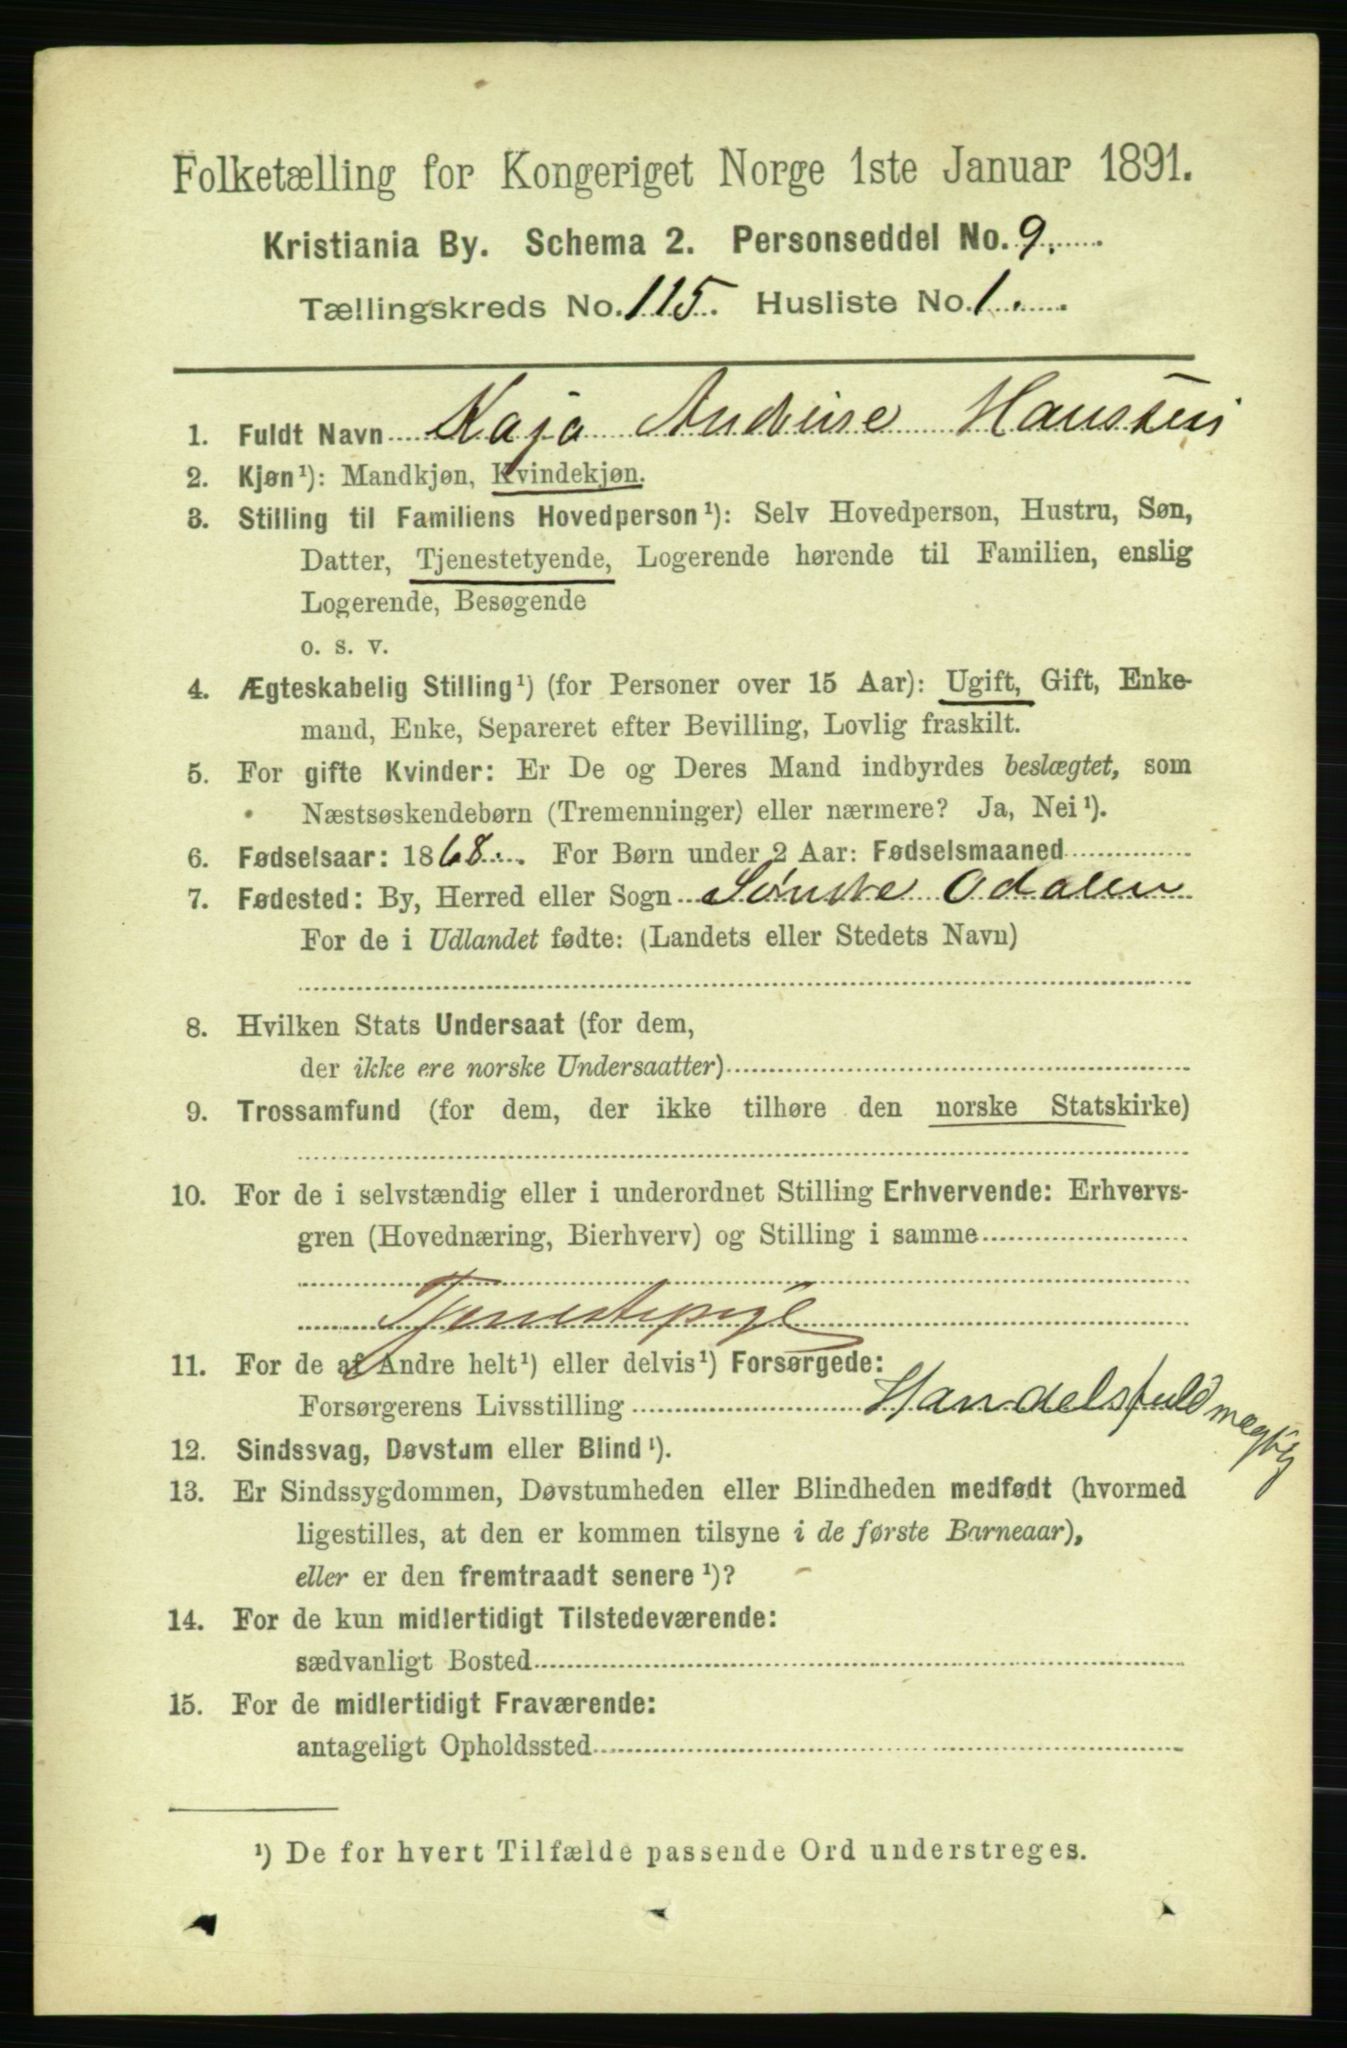 Folketælling for Kongeriget Norge 1ste Januar 1891.
Kristiania By. Schema 2. Personseddel No. 9.
Tællingskreds No. 115. Husliste No. 1.
1. Fuldt Navn Kaja Andrine Hanssen
2. Kjøn¹): Mandkjøn, Kvindekjøn.
3. Stilling til Familiens Hovedperson¹): Selv Hovedperson, Hustru, Søn,
Datter, Tjenestetyende, Logerende hørende til Familien, enslig
Logerende, Besøgende
o. s. v.
4. Ægteskabelig Stilling¹) (for Personer over 15 Aar): Ugift, Gift, Enke-
mand, Enke, Separeret efter Bevilling, Lovlig fraskilt.
5. For gifte Kvinder: Er De og Deres Mand indbyrdes beslægtet, som
Næstsøskendebørn (Tremenninger) eller nærmere? Ja, Nei¹).
6. Fødselsaar: 1868. For Børn under 2 Aar: Fødselsmaaned
7. Fødested: By, Herred eller Sogn Søndre Odalen
For de i Udlandet fødte: (Landets eller Stedets Navn)
8. Hvilken Stats Undersaat (for dem,
der ikke ere norske Undersaatter)
9. Trossamfund (for dem, der ikke tilhøre den norske Statskirke)
10. For de i selvstændig eller i underordnet Stilling Erhvervende: Erhvervs-
gren (Hovednæring, Bierhverv) og Stilling i samme
Tjenestepige
11. For de af Andre helt¹) eller delvis¹) Forsørgede:
Forsørgerens Livsstilling Handelsfuldmægtig
12. Sindssvag, Døvstum eller Blind¹).
13. Er Sindssygdommen, Døvstumheden eller Blindheden medfødt (hvormed
ligestilles, at den er kommen tilsyne i de første Barneaar),
eller er den fremtraadt senere¹)?
14. For de kun midlertidigt Tilstedeværende:
sædvanligt Bosted
15. For de midlertidigt Fraværende:
antageligt Opholdssted
¹) De for hvert Tilfælde passende Ord understreges.